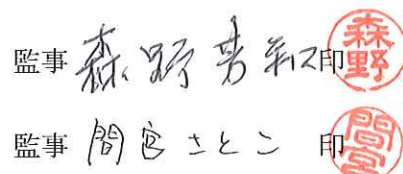 監事 森野 芳 印 森野
監事 間宮 さとこ 印 間宮